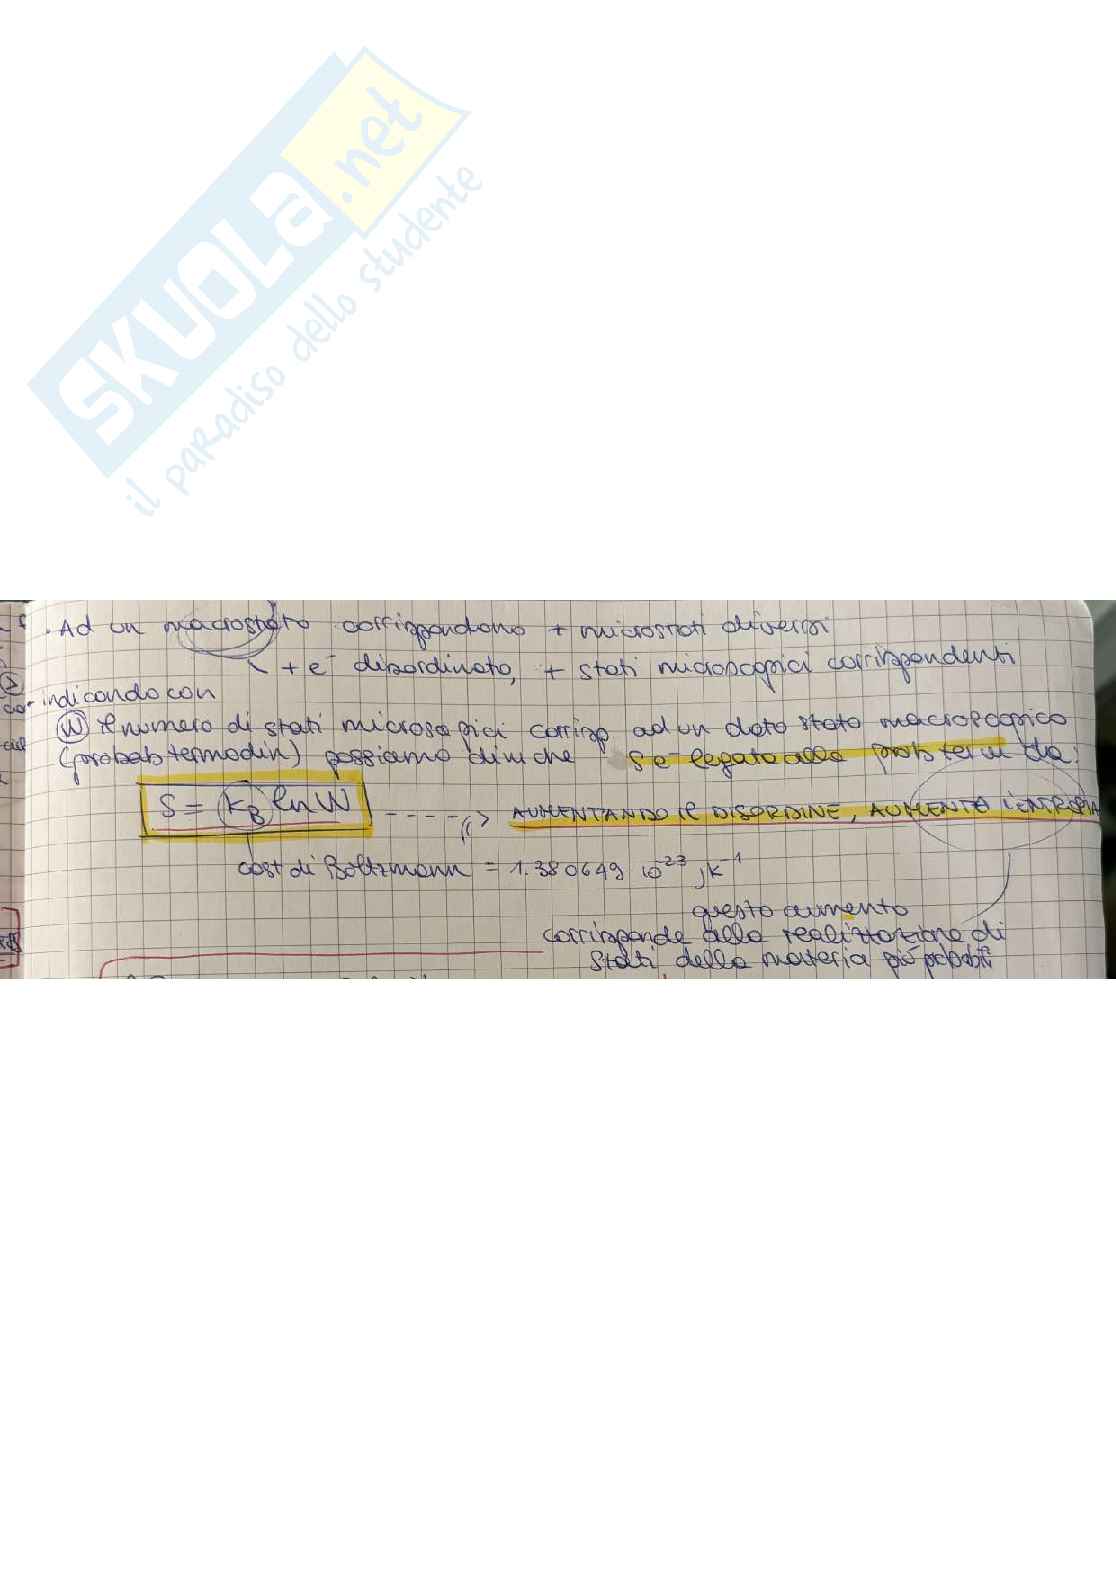 SKUOLA.net
il paradiso dello studente
. Ad un macrostato corrispondono + microstati diversi
+ e' disordinato, + stati microscopici corrispondenti
indicando con
W il numero di stati microscopici corrisp ad un dato stato macroscopico
(probab termodin) possiamo dire che S e' legato alla prob term da:
S = kB ln W ----> AUMENTANDO il DISORDINE, AUMENTA l'ENTROPIA
cost di Boltzmann = 1.380649 10-23 JK-1
questo aumento
corrisponde alla realizzazione di
stati della materia più probabili